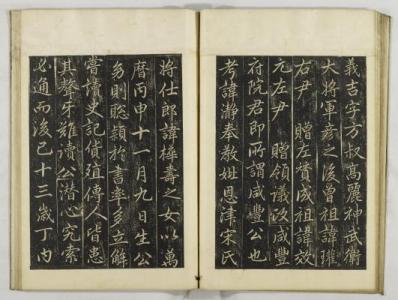 義吉字方叔高麗神武衛
大將軍彦之後曾祖諱瓘
右尹 贈左贊成祖諱效
元左尹 贈領議政咸豐
府院君即所謂咸豐公也
考諱瀞奉敎妣恩津宋氏
將仕郎諱 壽之女以萬
曆丙申十一月九日生公
幼則聰穎於書率多立解
嘗讀史記貨殖傳人皆患
其聱牙難讀公潛心究索
必通而後已十三歲丁內